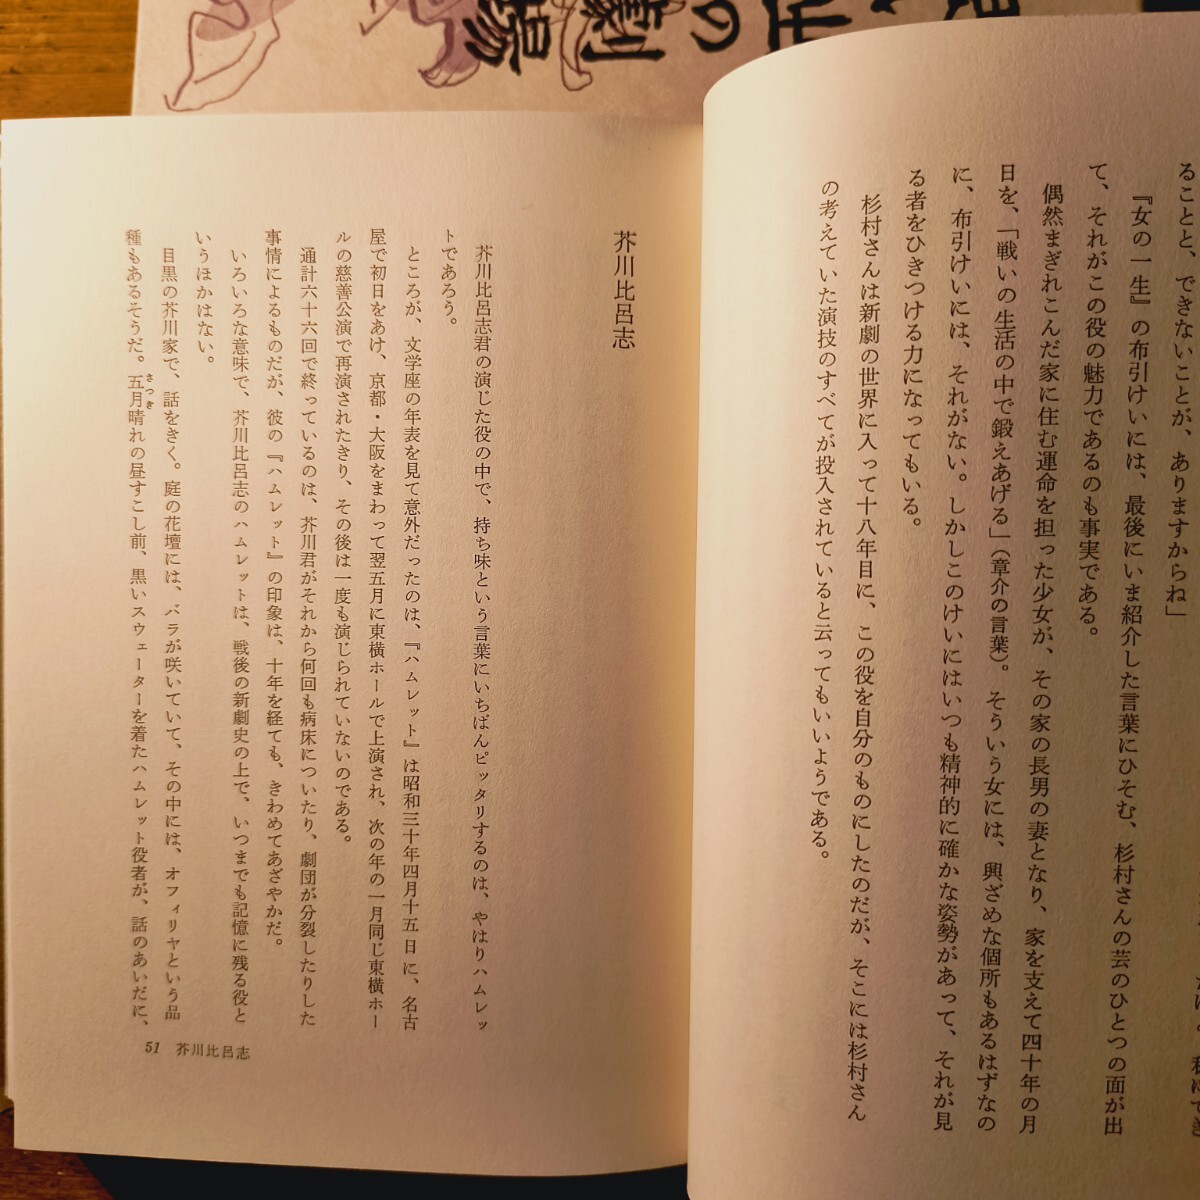 ることと、できないことが、ありますからね」
『女の一生』の布引けいには、最後にいま紹介した言葉にひそむ、杉村さんの芸のひとつの面が出
て、それがこの役の魅力であるのも事実である。
偶然まぎれこんだ家に住む運命を担った少女が、その家の長男の妻となり、家を支えて四十年の月
日を、「戦いの生活の中で鍛えあげる」(章介の言葉)。そういう女には、興ざめな個所もあるはずなの
に、布引けいには、それがない。しかしこのけいにはいつも精神的に確かな姿勢があって、それが見
る者をひきつける力になってもいる。
杉村さんは新劇の世界に入って十八年目に、この役を自分のものにしたのだが、そこには杉村さん
の考えていた演技のすべてが投入されていると云ってもいいようである。
芥川比呂志
芥川比呂志君の演じた役の中で、持ち味という言葉にいちばんピッタリするのは、やはりハムレッ
トであろう。
ところが、文学座の年表を見て意外だったのは、『ハムレット』は昭和三十年四月十五日に、名古
屋で初日をあけ、京都・大阪をまわって翌五月に東横ホールで上演され、次の年の一月同じ東横ホー
ルの慈善公演で再演されたきり、その後は一度も演じられていないのである。
通計六十六回で終っているのは、芥川君がそれから何回も病床についたり、劇団が分裂したりした
事情によるものだが、彼の『ハムレット』の印象は、十年を経ても、きわめてあざやかだ。
いろいろな意味で、芥川比呂志のハムレットは、戦後の新劇史の上で、いつまでも記憶に残る役と
いうほかはない。
目黒の芥川家で、話をきく。庭の花壇には、バラが咲いていて、その中には、オフィリヤという品
種もあるそうだ。五月晴れの昼すこし前、黒いスウェーターを着たハムレット役者が、話のあいだに、
さつき
51 芥川比呂志
の劇
場